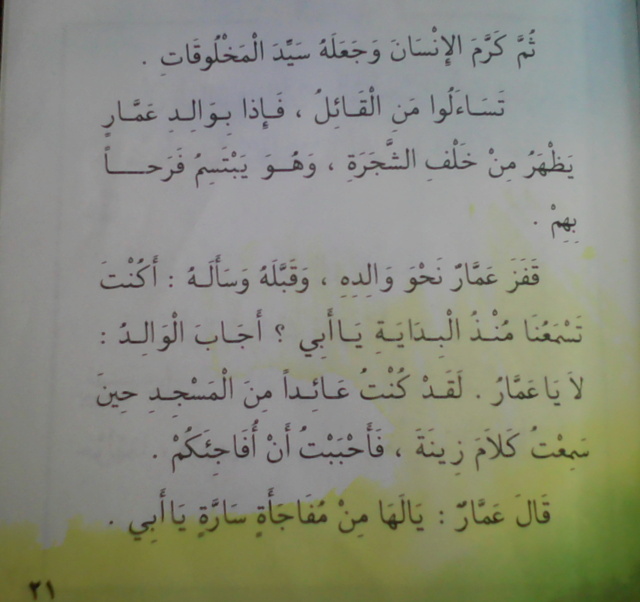 ثُمَّ كَرَّمَ الإِنْسَانَ وَجَعَلَهُ سَيِّدَ الْمَخْلُوقَاتِ .
تَسَاءَلُوا مَنِ الْقَائِلُ ، فَإِذا بِوَالِدِ عَمَّارٍ
يَظْهَرُ مِنْ خَلْفِ الشَّجَرَةِ ، وَهُوَ يَبْتَسِمُ فَرَحـــاً
بِهِمْ .
قَفَزَ عَمَّارٌ نَحْوَ وَالِدِهِ ، وَقَبَّلَهُ وَسَأَلَهُ : أَكُنْتَ
تَسْمَعُنَا مُنْذُ الْبِدَايَةِ يَا أَبِي ؟ أَجَابَ الْوَالِدُ :
لاَ يَا عَمَّارُ . لَقَدْ كُنْتُ عَائِداً مِنَ الْمَسْجِدِ حِينَ
سَمِعْتُ كَلاَمَ زِينَةَ ، فَأَحْبَبْتُ أَنْ أُفَاجِئَكُمْ .
قَالَ عَمَّارٌ : يَالَهَا مِنْ مُفَاجَأَةٍ سَارَّةٍ يَا أَبِي .
٢١